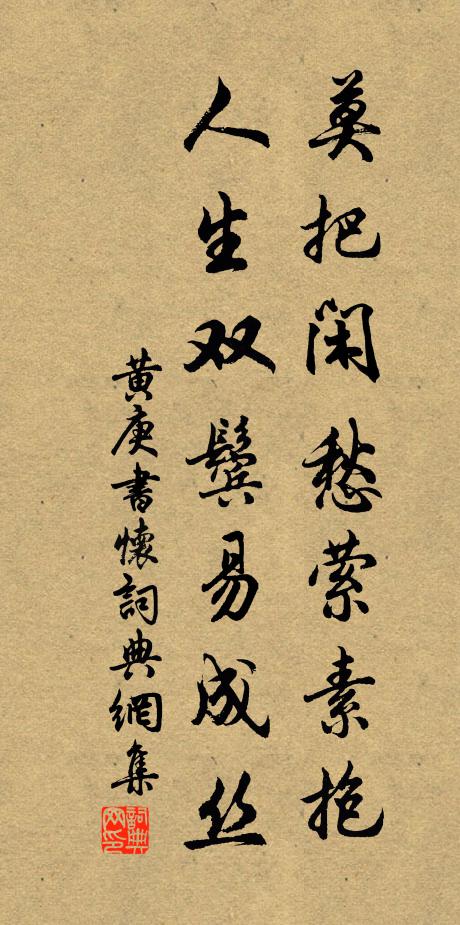 莫把闲愁萦素抱
人生双鬓易成丝
黄庚書懷詞典網集
詞典网印